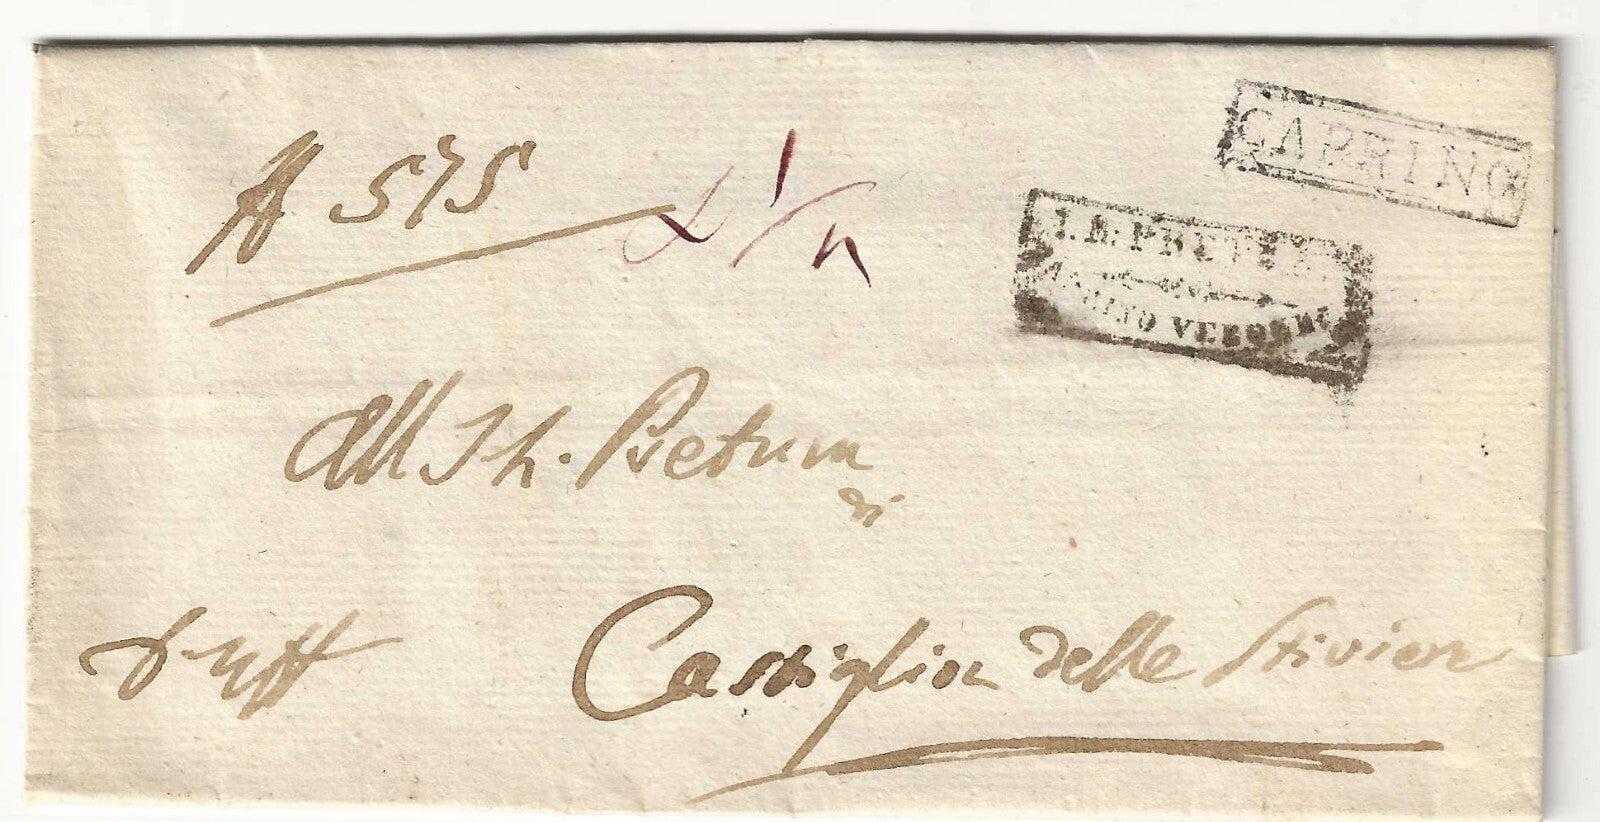 CAPRINO
575
I. R. PRETURA
CAPRINO VERONESE
All I. R. Pretura
di
Castiglion delle Stivier